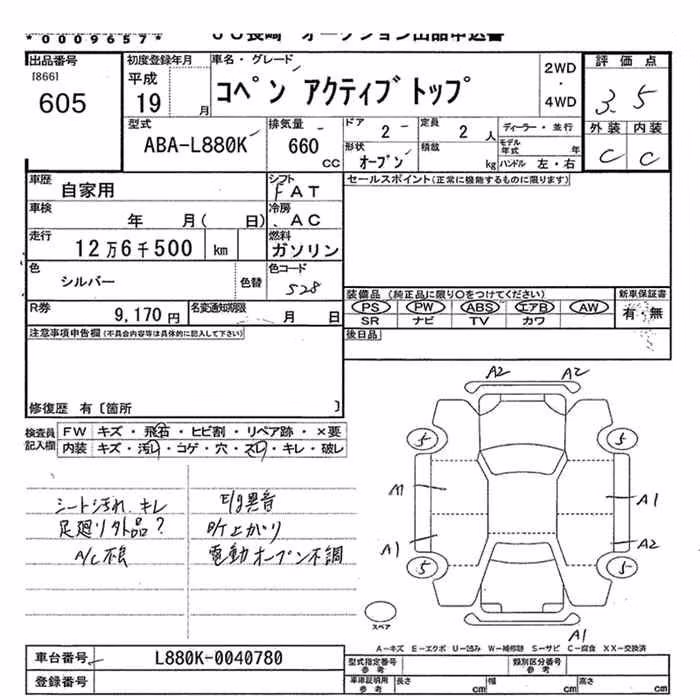 *0009657*
JU長崎 オークション出品申込書
出品番号
[866]
605
初度登録年月
平成
19 月
車名・グレード
コペン アクティブトップ
2WD
・
4WD
評価点
3.5
外装 内装
C C
型式
ABA-L880K
排気量
660
CC
ドア
2
定員
2 人
ディーラー・並行
モデル年式 年
形状
オープン
積載
kg
ハンドル 左・右
車歴
自家用
シフト
FAT
セールスポイント(正常に機能するものに限ります)
車検
年 月( 日)
冷房
AC
走行
12万6千500 km
燃料
ガソリン
色
シルバー
色替
色コード
S28
R券
9,170円
名変通知期限
月 日
装備品(純正品に限り○をつけてください)
PS PW ABS エアB AW
SR ナビ TV カワ
新車保証書
有・無
注意事項申告欄(不具合内容等は具体的に記入して下さい)
後日品
修復歴 有〔箇所 〕
検査員記入欄
FW キズ・飛石・ヒビ割・リペア跡・×要
内装 キズ・汚れ・コゲ・穴・スレ・キレ・破レ
シート汚れ、キレ
足廻り外品?
A/C不良
E/g異音
P/T上がり
電動オープン不調
A2 A2
5 5
A1 A1
A1 A2
5 5
スペア
A1
A-キズ E-エクボ U-凹み W-補修跡 S-サビ C-腐食 XX-交換済
車台番号
L880K-0040780
登録番号
型式指定番号
参考
類別区分番号
参考
車庫証明用
参考
長さ cm
幅 cm
高さ cm